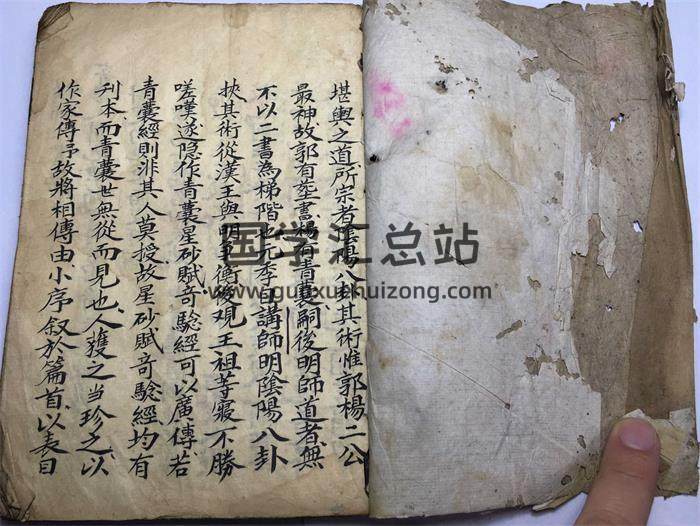 堪輿之道所宗者陰陽八其術惟郭楊二公
最神故郭有塟書楊有青囊嗣後明師道者無
不以二書為梯階也元季有講師明陰陽八卦
挾其術從漢王與明王衡後观王祖等寢不勝
嗟嘆遂隐作青囊星砂賦奇驗經可以廣傳若
青囊經則非其人莫授故星砂賦奇驗經均有
刋本而青囊世無從而見也人獲之当珍之以
作家傳予故將相傳由小序叙於篇首以表目
国学汇总站
www.guoxuehuizong.com